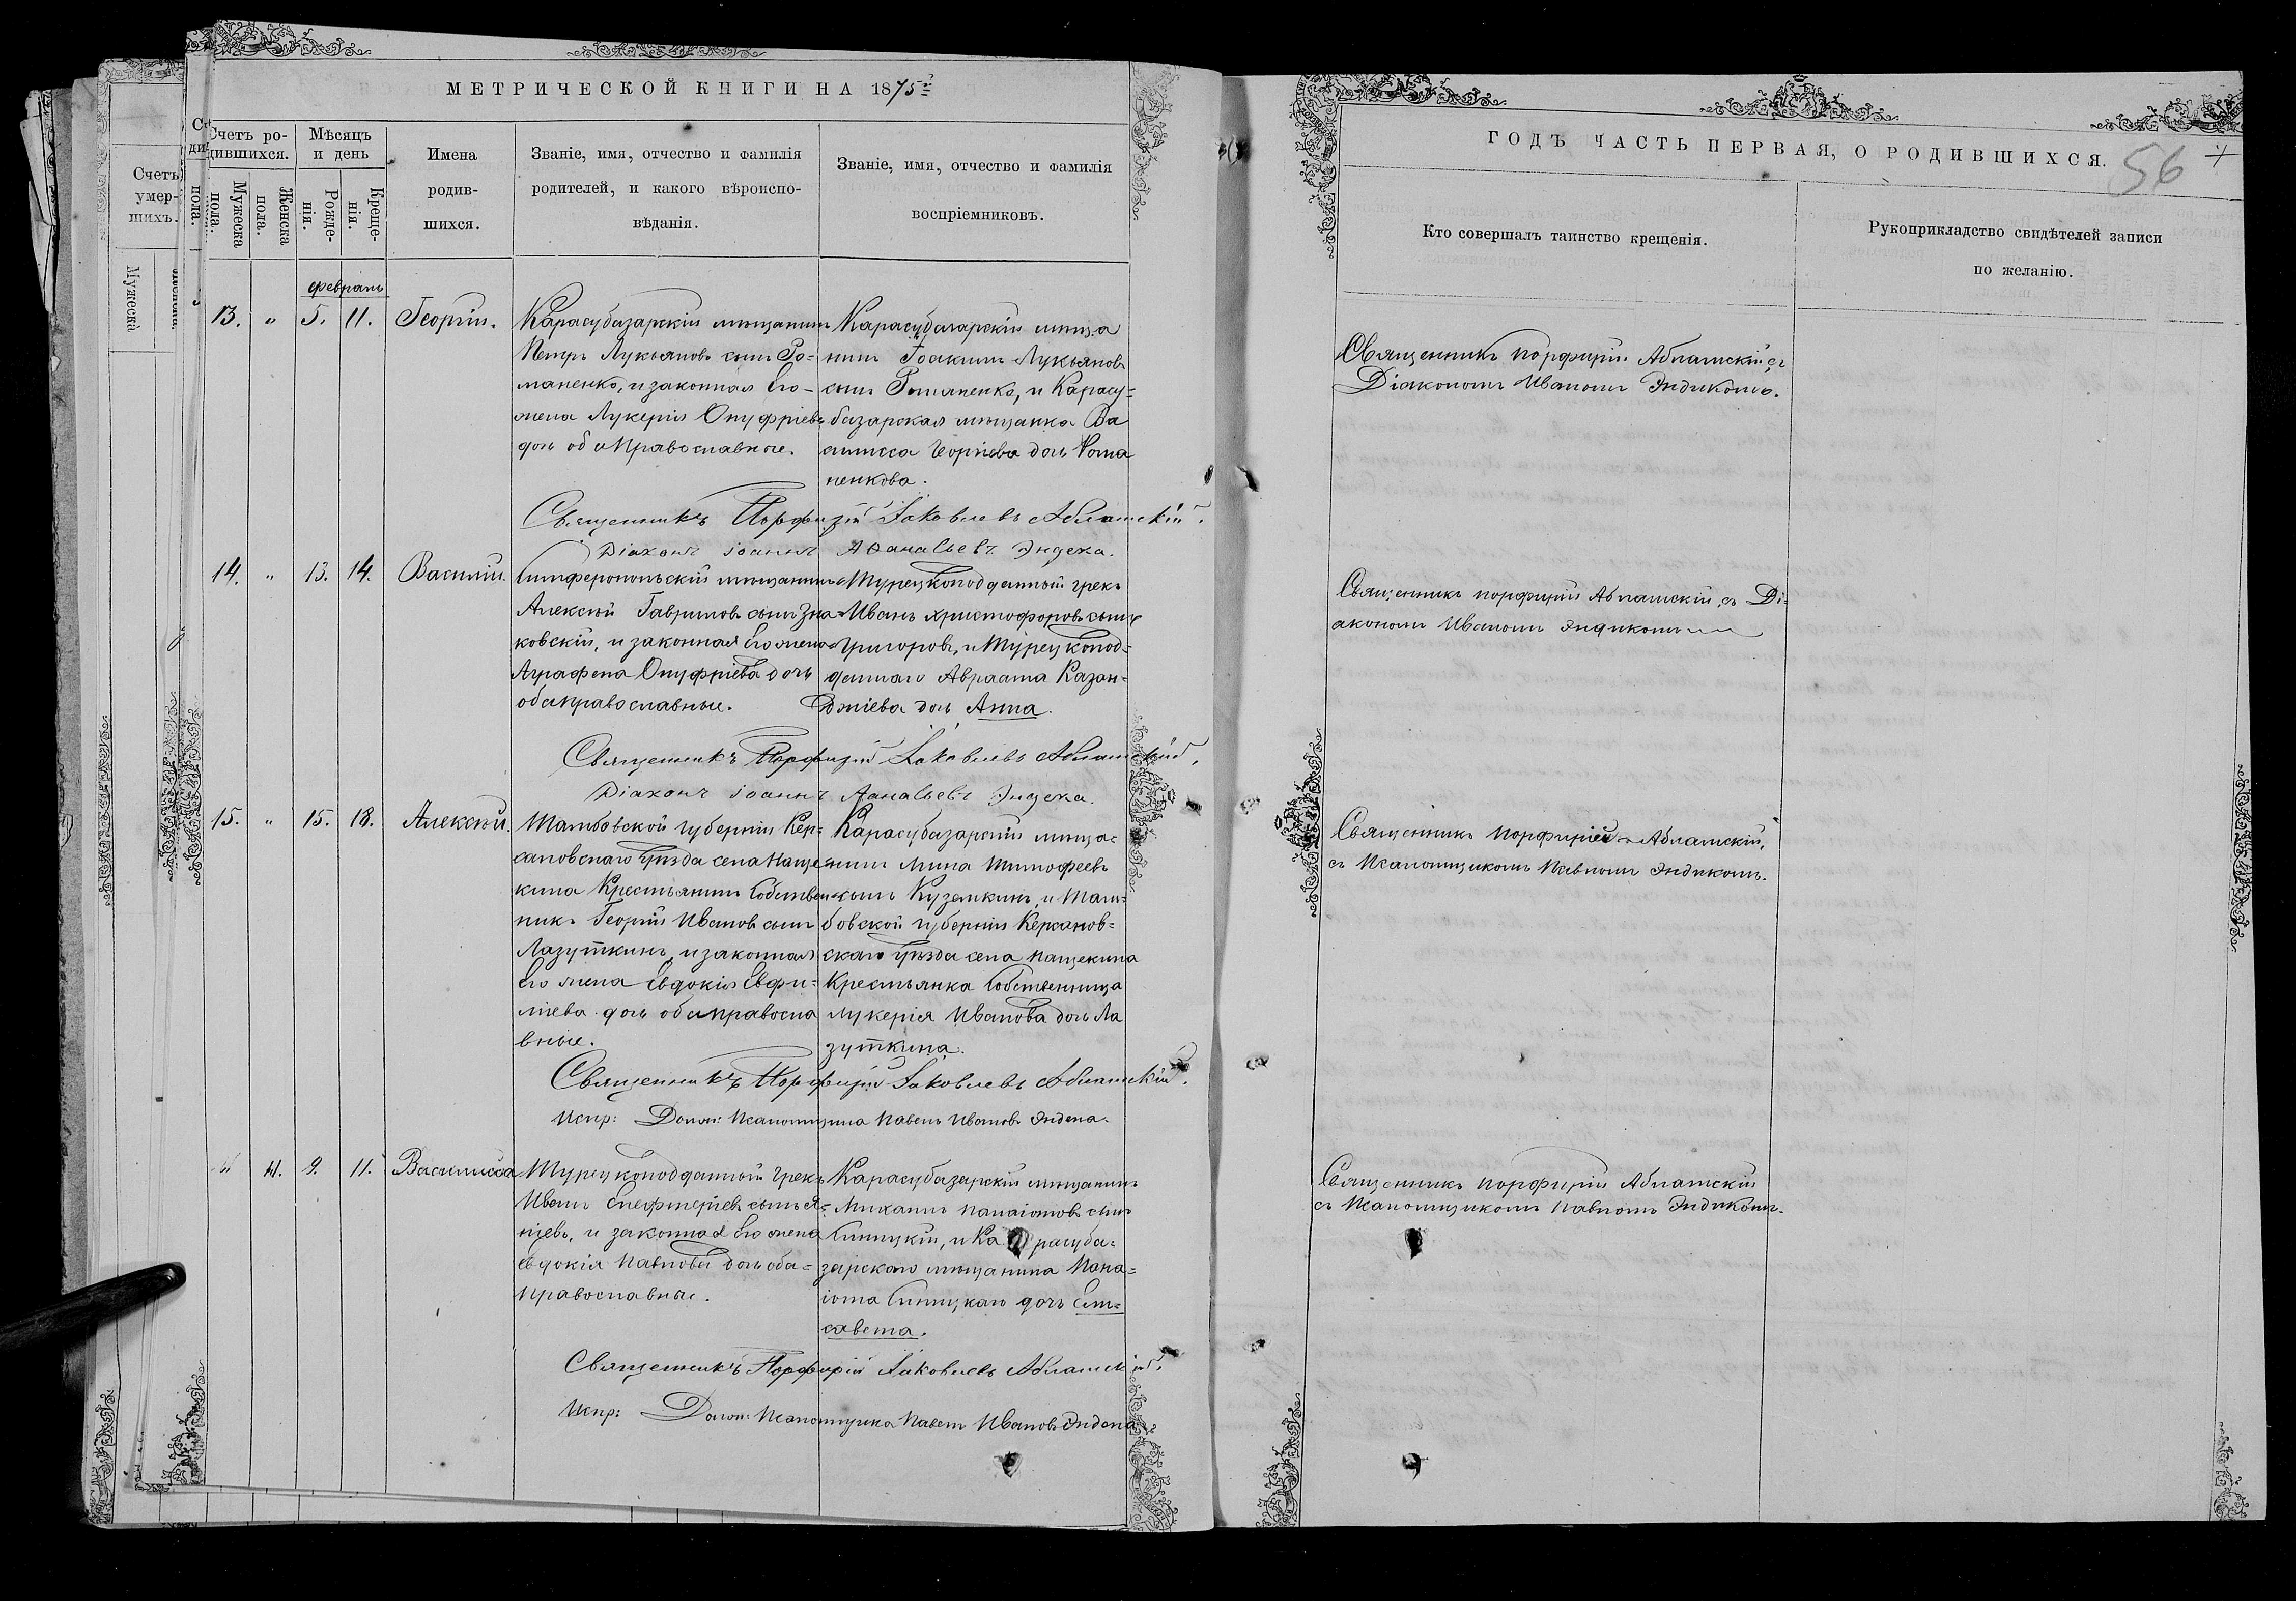 МЕТРИЧЕСКОЙ КНИГИ НА 1875й
Счетъ ро-
дившихся.
Мѣсяцъ
и день
Мужеска
пола.
Женска
пола.
Рожде-
нія.
Креще-
нія.
Имена
родив-
шихся.
Званіе, имя, отчество и фамилія
родителей, и какого вѣроиспо-
вѣданія.
Званіе, имя, отчество и фамилія
воспріемниковъ.
Счетъ
умер-
шихъ.
Мужеска
февраль
13. " 5. 11. Георгій.
Карасубазарскій мѣщанинъ
Петръ Лукьяновъ сынъ Ро-
маненко, и законная Его
жена Лукерія Онуфріева
дочь оба Православные.
Карасубазарскій мѣща
нинъ Іоакимъ Лукьяновъ
сынъ Романенко, и Карасу=
базарская мѣщанка Ва
силисса Георгіева дочь Рома
ненкова.
Священникъ Порфирій Іаковлевъ Абламскій.
Діаконъ Іоаннъ Аѳанасьевъ Эндека.
14. " 13. 14. Василій.
Симферопольскій мѣщанинъ
Алексѣй Гавриловъ сынъ Зна=
ковскій, и законная Его жена
Аграфена Онуфріева дочь
оба православные.
Турецкоподданный грекъ
Иванъ Христофоровъ сынъ
Григоровъ, и Турецкопод=
даннаго Авраама Казан=
джіева дочь Анна.
Священникъ Порфирій Іаковлевъ Абламскій.
Діаконъ Іоаннъ Аѳанасьевъ Эндека.
15. " 15. 18. Алексѣй.
Тамбовской губерніи Кер=
сановскаго уѣзда села Наще=
кина Крестьянинъ Собствен=
никъ Георгій Ивановъ сынъ
Лазуткинъ, и законная
Его жена Евдокія Евфи=
міева дочь оба правосла
вные.
Карасубазарскій мѣща=
нинъ Мина Тимофеевъ
сынъ Куземкинъ, и Там=
бовской губерніи Керсанов=
скаго уѣзда села Нащекина
Крестьянка Собственница
Лукерія Иванова дочь Ла
зуткина.
Священникъ Порфирій Іаковлевъ Абламскій.
Испр: Долж: Псаломщика Павелъ Ивановъ Эндека.
" 11. 9. 11. Василисса
Турецкоподданный Грекъ
Иванъ Елефтеріевъ сынъ
и законная Его жена
Евдокія Павлова дочь оба=
православные.
Карасубазарскій мѣщанинъ
Михаилъ Панаіотовъ сынъ
Синицкій, и Карасуба=
зарскаго мѣщанина Пана=
іота Синицкаго дочь Ели=
савета.
Священникъ Порфирій Іаковлевъ Абламскій.
Испр: Долж: Псаломщика Павелъ Ивановъ Эндека.
ГОДЪ ЧАСТЬ ПЕРВАЯ, О РОДИВШИХСЯ.
56
Кто совершалъ таинство крещенія.
Рукоприкладство свидѣтелей записи
по желанію.
Священникъ Порфирій Абламскій съ
Діакономъ Иваномъ Эндикомъ.
Священникъ Порфирій Абламскій, съ Ді=
акономъ Иваномъ Эндикомъ
Священникъ Порфирій Абламскій,
съ Псаломщикомъ Павломъ Эндикомъ.
Священникъ Порфирій Абламскій
съ Псаломщикомъ Павломъ Эндикомъ.